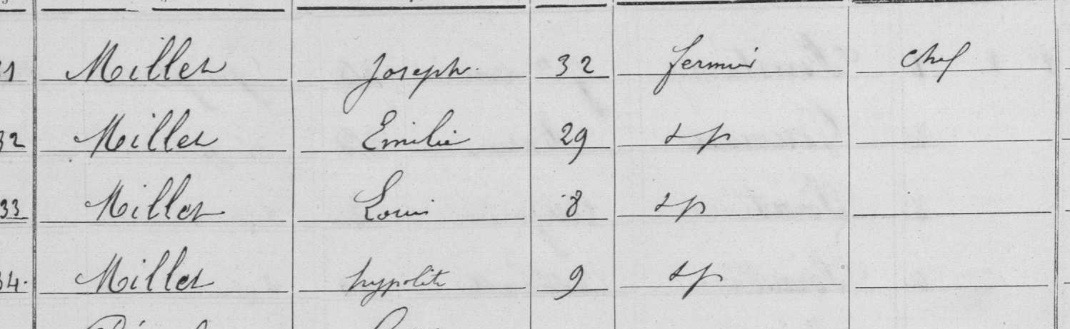 31 Millet Joseph 32 fermier chef
32 Millet Emilie 29 sp
33 Millet Louis 8 sp
34 Millet hypolite 9 sp